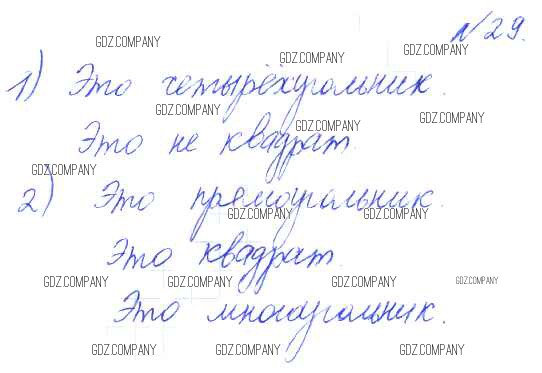 №29.
GDZ.COMPANY
GDZ.COMPANY GDZ.COMPANY
1) Это четырёхугольник.
GDZ.COMPANY GDZ.COMPANY
GDZ.COMPANY
Это не квадрат.
GDZ.COMPANY
2) Это прямоугольник.
GDZ.COMPANY GDZ.COMPANY
Это квадрат.
GDZ.COMPANY GDZ.COMPANY GDZ.COMPANY GDZ.COMPANY
Это многоугольник.
GDZ.COMPANY GDZ.COMPANY GDZ.COMPANY